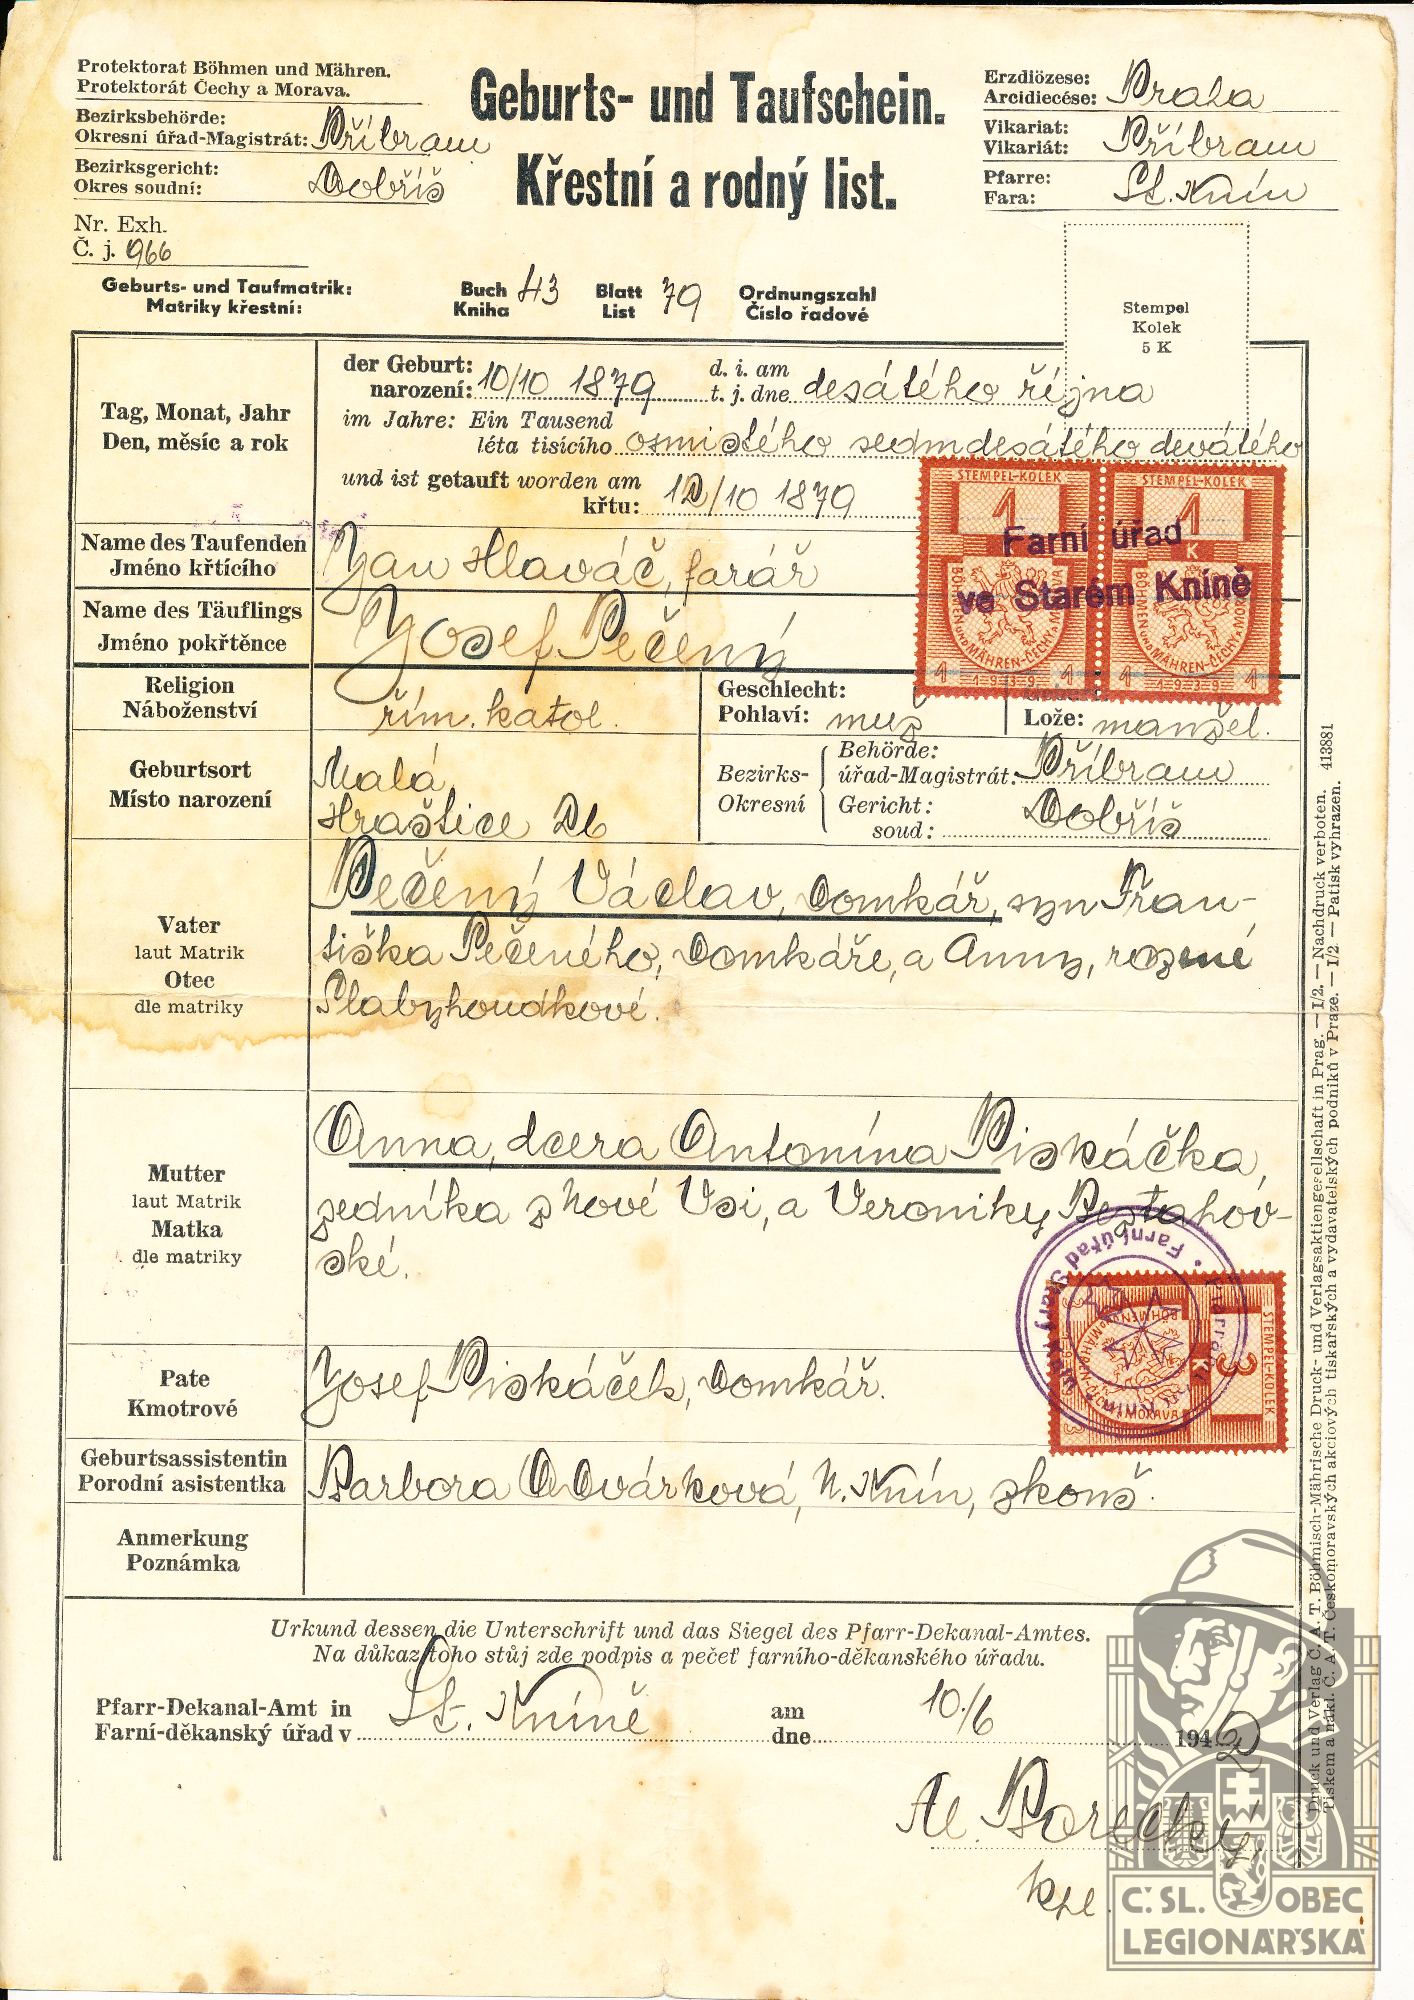 Protektorat Böhmen und Mähren.
Protektorát Čechy a Morava.
Bezirksbehörde:
Okresní úřad-Magistrát: Příbram
Bezirksgericht:
Okres soudní: Dobříš
Nr. Exh.
Č. j. 966
Geburts- und Taufschein.
Křestní a rodný list.
Erzdiözese:
Arcidiecése: Praha
Vikariat:
Vikariát: Příbram
Pfarre:
Fara: St. Knín
Geburts- und Taufmatrik:
Matriky křestní:
Buch 43
Kniha
Blatt 79
List
Ordnungszahl
Číslo řadové
Stempel
Kolek
5 K
Tag, Monat, Jahr
Den, měsíc a rok
der Geburt:
narození: 10/10 1879
d. i. am
t. j. dne desátého října
im Jahre: Ein Tausend
léta tisícího osmistého sedmdesátého devátého
und ist getauft worden am
křtu: 12/10 1879
STEMPEL-KOLEK
1
K
BÖHMEN UND MÄHREN-ČECHY A MORAVA
1 1-9-3-9 1
STEMPEL-KOLEK
1
K
BÖHMEN UND MÄHREN-ČECHY A MORAVA
1 1-9-3-9 1
Farní úřad
ve Starém Kníně
Name des Taufenden
Jméno křtícího
Jan Hlaváč, farář
Name des Täuflings
Jméno pokřtěnce
Josef Pečený
Religion
Náboženství
řím. katol.
Geschlecht:
Pohlaví: muž
Lože: manžel.
Geburtsort
Místo narození
Malá
Hraštice 26
Bezirks-
Okresní
Behörde:
úřad-Magistrát: Příbram
Gericht:
soud: Dobříš
Vater
laut Matrik
Otec
dle matriky
Pečený Václav, domkář, syn Fran-
tiška Pečeného, domkáře, a Anny, rozené
Plabyhoudkové.
Mutter
laut Matrik
Matka
dle matriky
Anna, dcera Antonína Piskáčka,
sedníka z Nové Vsi, a Veroniky Beztahov-
ské.
Farní úřad Starý Knín
STEMPEL-KOLEK
3
K
BÖHMEN UND MÄHREN-ČECHY A MORAVA
3 1-9-3-9 3
Pate
Kmotrové
Josef Piskáček, domkář.
Geburtsassistentin
Porodní asistentka
Barbora Dvárková, N. Knín, zkouš.
Anmerkung
Poznámka
Urkund dessen die Unterschrift und das Siegel des Pfarr-Dekanal-Amtes.
Na důkaz toho stůj zde podpis a pečeť farního-děkanského úřadu.
Pfarr-Dekanal-Amt in
Farní-děkanský úřad v St. Kníně
am
dne 10./6 1942
Al. Borecký,
kpl.
Druck und Verlag C. A. T. Böhmisch-Mährische Druck- und Verlagsaktiengesellschaft in Prag. — I/2. — Nachdruck verboten. 413881
Tiskem a nákl. C. A. T. Českomoravských akciových tiskařských a vydavatelských podniků v Praze. — I/2. — Patisk vyhrazen.
Č. SL. OBEC
LEGIONÁŘSKÁ